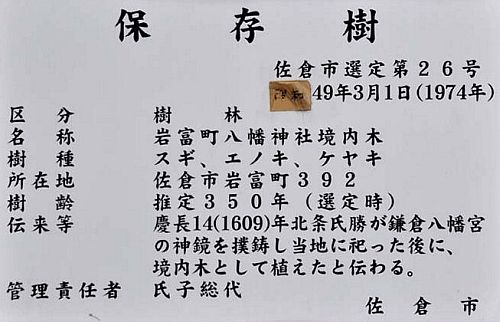 保存樹
佐倉市選定第26号
昭和49年3月1日(1974年)
区分 樹林
名称 岩富町八幡神社境内木
樹種 スギ、エノキ、ケヤキ
所在地 佐倉市岩富町392
樹齢 推定350年(選定時)
伝来等 慶長14(1609)年北条氏勝が鎌倉八幡宮
の神鏡を撲鋳し当地に祀った後に、
境内木として植えたと伝わる。
管理責任者 氏子総代
佐倉市